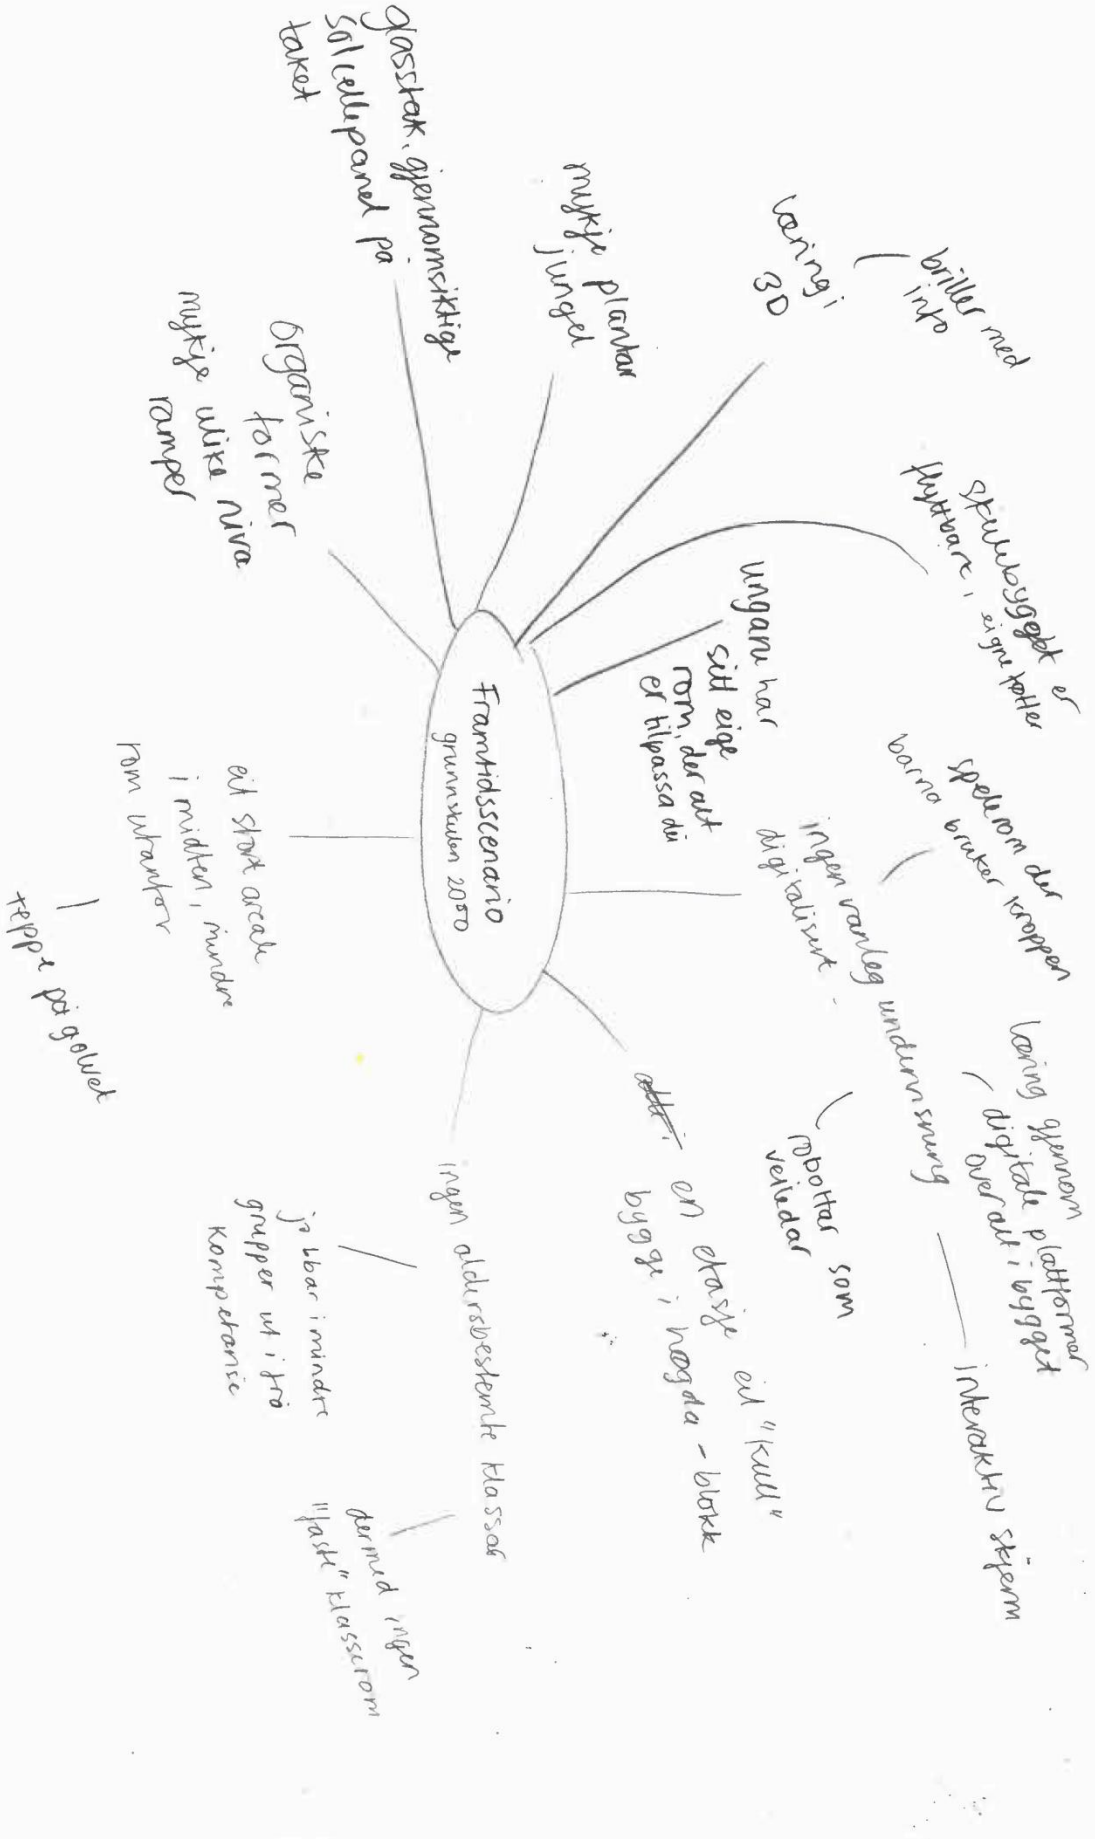 Framtidsscenario
grunnskulen 2000
glasstak, gjennomsiktige
solcellepanel på
taket
mykje plantar
jungel
læring i
3D
briller med
info
skulebygget er
flyttbare, eigne føtter
ungane har
sitt eige
rom, der alt
er tilpassa dei
ingen vanleg undervisning
digitalisert
spelerom der
barna bruker kroppen
læring gjennom
digitale plattformer
overalt i bygget
interaktiv skjerm
robottar som
veiledar
en etasje eit "kull"
bygge i høgda - blokk
ingen aldersbestemte klassar
jobbar i mindre
grupper ut i frå
kompetanse
dermed ingen
"faste" klasserom
eit stort areale
i midten, mindre
rom utanfor
teppe på golvet
organiske
former
mykje ulike nivå
ramper